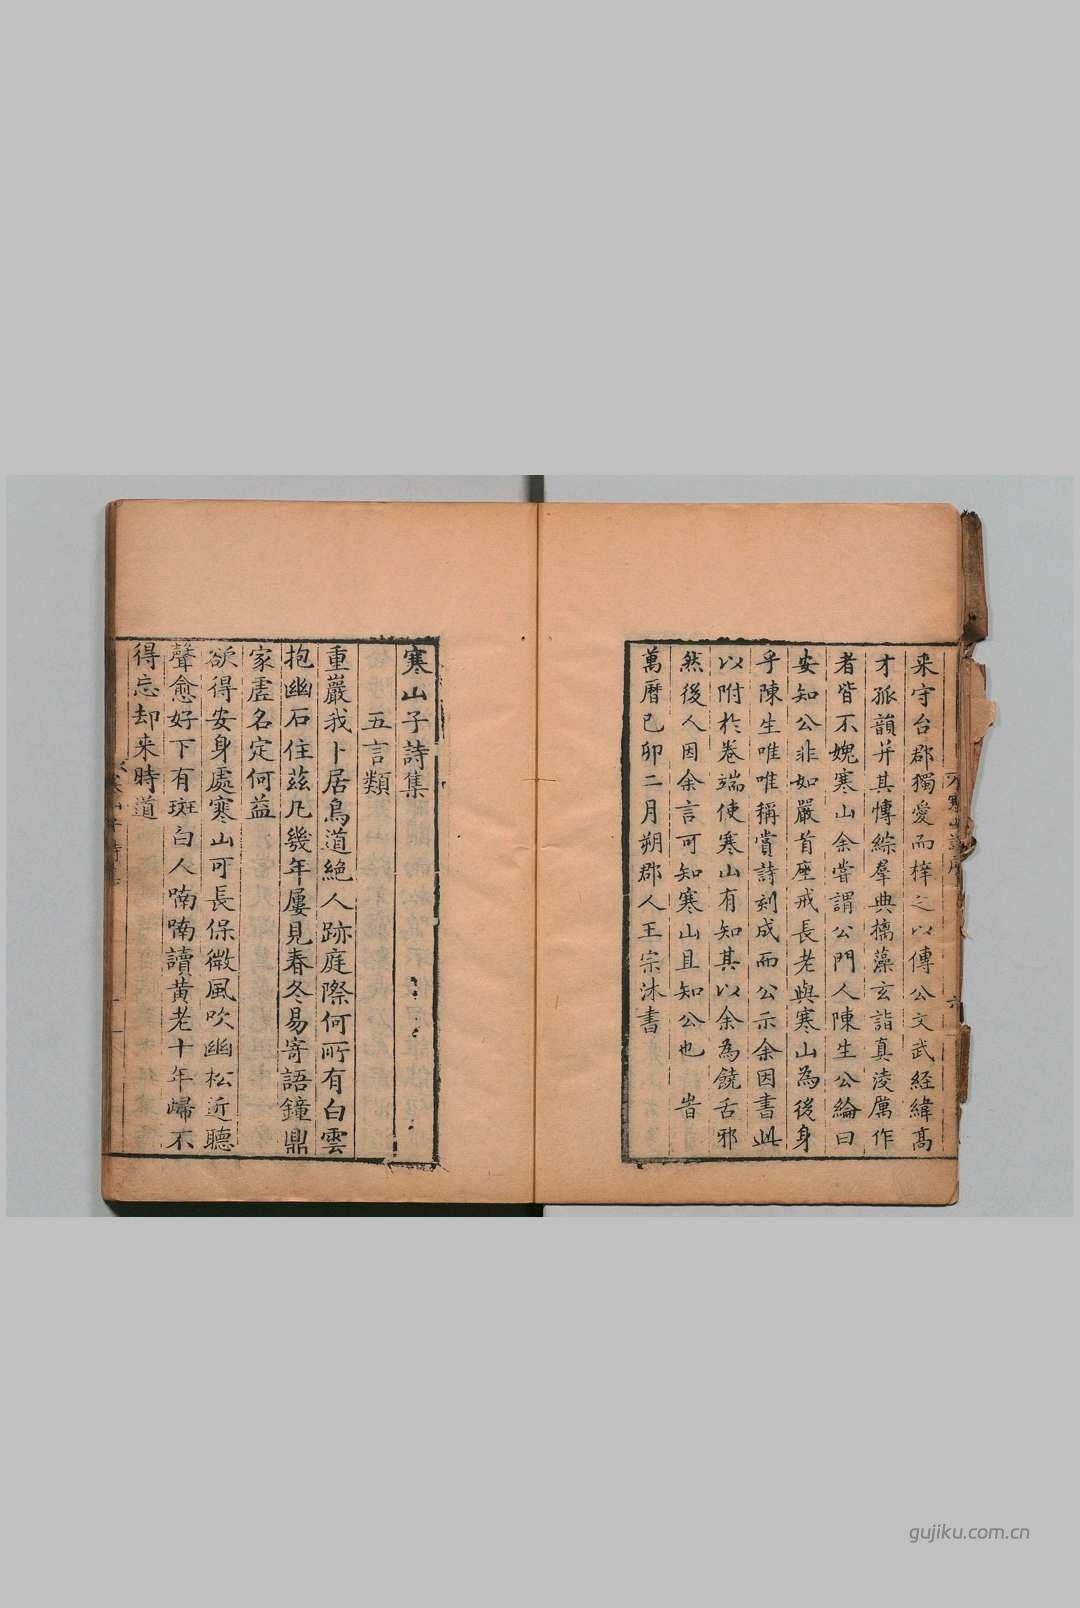 来守台郡獨愛而梓之以傳公文武經緯高
才孤韻并其博綜羣典摛藻玄詣真淩厲作
者皆不媿寒山余嘗謂公門人陳生公綸曰
安知公非如嚴首座戒長老與寒山為後身
乎陳生唯唯稱賞詩刻成而公示余因書此
以附於卷端使寒山有知其以余為饒舌邪
然後人因余言可知寒山且知公也 旹
萬曆己卯二月朔郡人王宗沐書
寒山子詩集
五言類
重巖我卜居鳥道絕人跡庭際何所有白雲
抱幽石住茲凡幾年屢見春冬易寄語鐘鼎
家虛名定何益
欲得安身處寒山可長保微風吹幽松近聽
聲愈好下有斑白人喃喃讀黄老十年歸不
得忘却来時道
gujiku.com.cn